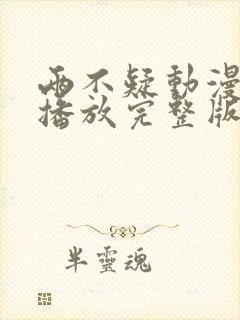 兩不疑動漫
播放完整版
半靈魂